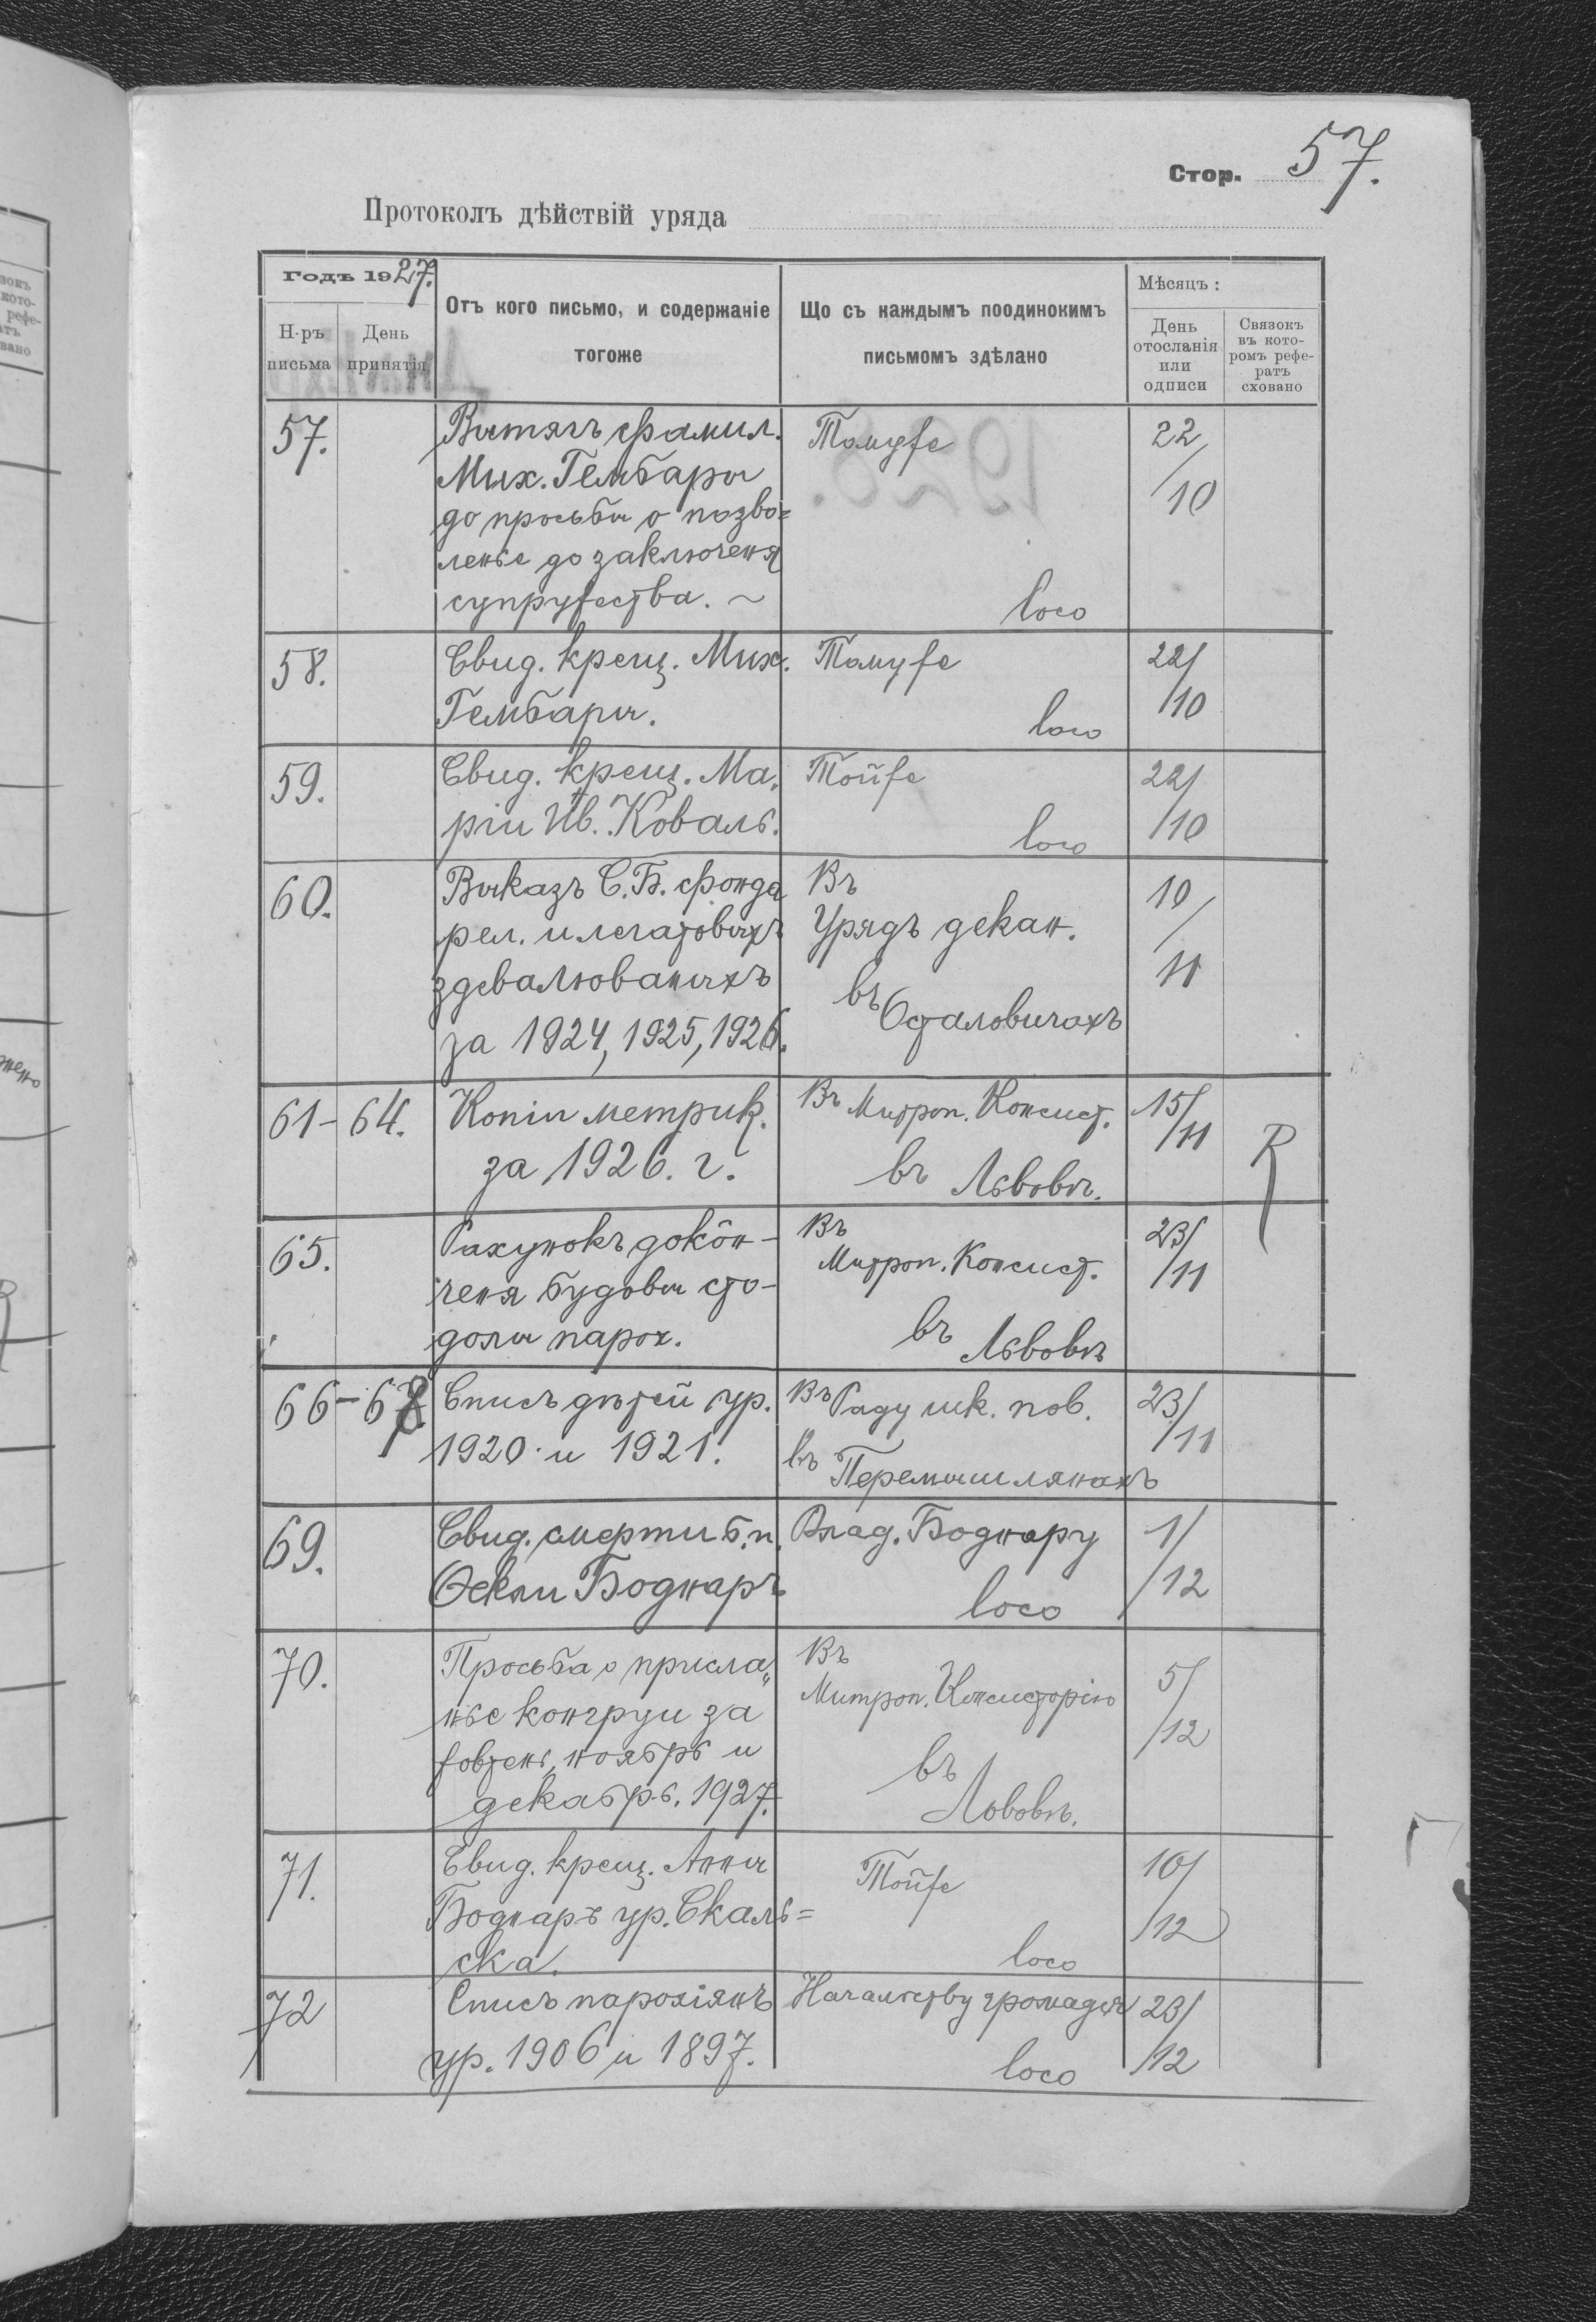 Стор. 57.
Протоколъ дѣйствій уряда
Годъ 1927.
Н-ръ письма
День принятія
Отъ кого письмо, и содержаніе
тогоже
Що съ каждымъ поодинокимъ
письмомъ здѣлано
Мѣсяцъ:
День
отосланія
или
одписи
Связокъ
въ кото-
ромъ рефе-
ратъ
сховано
57. Вытягъ фамил. Томуже 22/10
Мих. Гембары
до просьбы о позво=
ленье до заключеня
супружества. ~ loco
58. Свид. крещ. Мих. Томуже 22/10
Гембары. loco
59. Свид. крещ. Ма„ Тойже 22/10
ріи Ив. Коваль. loco
60. Выказъ С.Б. фонда Въ 10/11
рел. и легатовыхъ Урядъ декан.
здевалюваныхъ въ Осталовичахъ
за 1924, 1925, 1926.
61-64. Копіи метрик. Въ Митроп. Консист. 15/11 R
за 1926. г. въ Львовѣ.
65. Рахунокъ докôн- Въ 23/11
ченя будовы сто- Митроп. Консист.
долы парох. въ Львовѣ
66-68 Списъ дѣтей ур. Въ Раду шк. пов. 23/11
1920. и 1921. въ Перемышлянахъ
69. Свид. смерти б.п. Влад. Боднару 1/12
Ѳекли Боднаръ loco
70. Просьба о присла„ Въ 5/12
нье конгруи за Митроп. Консисторію
жовтень, ноябрь и въ
декабрь. 1927. Львовѣ.
71. Свид. крещ. Анны Тойже 10/12
Боднаръ ур. Скаль=
ска. loco
72 Списъ парохіянъ Начальству громады 23/12
ур. 1906 и 1897. loco